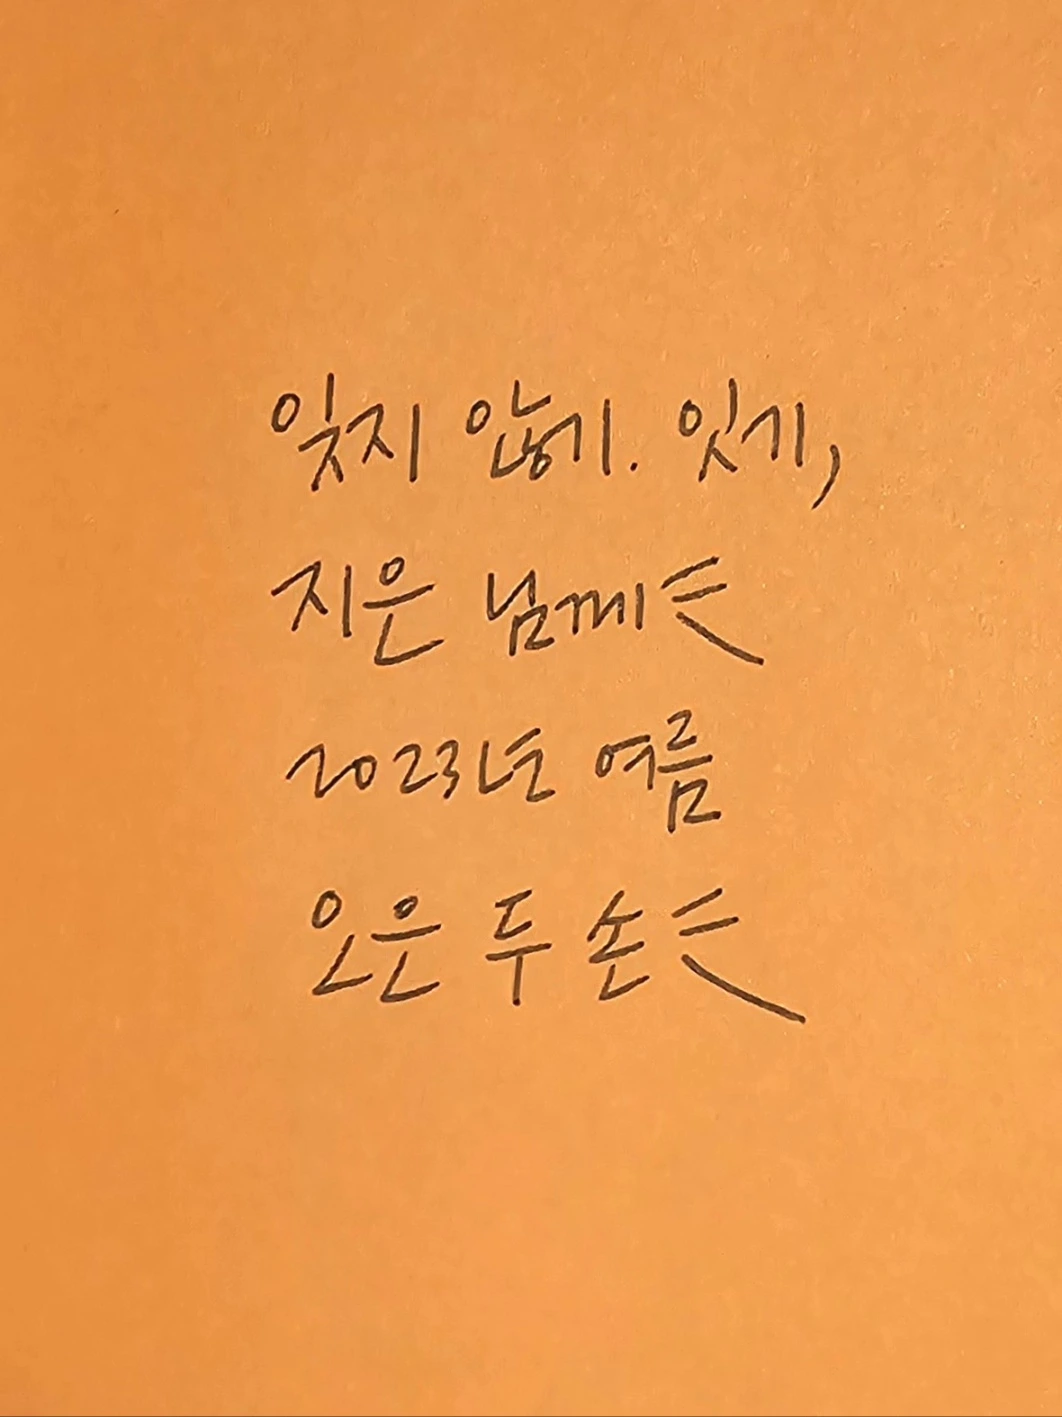 잊지 않기. 잇기,
지은 님께
2023년 여름
오은 두 손